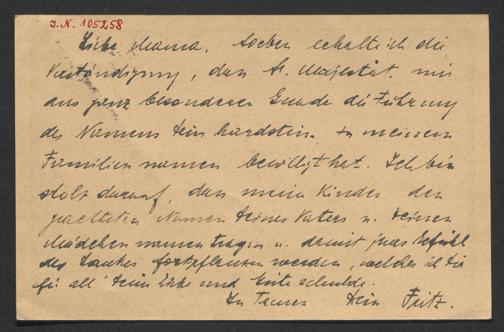 I.N. 105258
Liebe Mama, soeben erhalte ich die
Verständigung, dass S. Majestät mir
aus ganz besonderer Gnade die Führung
des Namens Steinhardstein zu meinem
Familiennamen bewilligt hat. Ich bin
stolz darauf, dass meine Kinder den
geehrten Namen Deines Vaters u. Deinen
Mädchennamen tragen u. damit jenes Gefühl
des Dankes fortpflanzen werden, welches ich Dir
für all' Deine Liebe und Güte schulde.
In Treuen Dein Fritz.